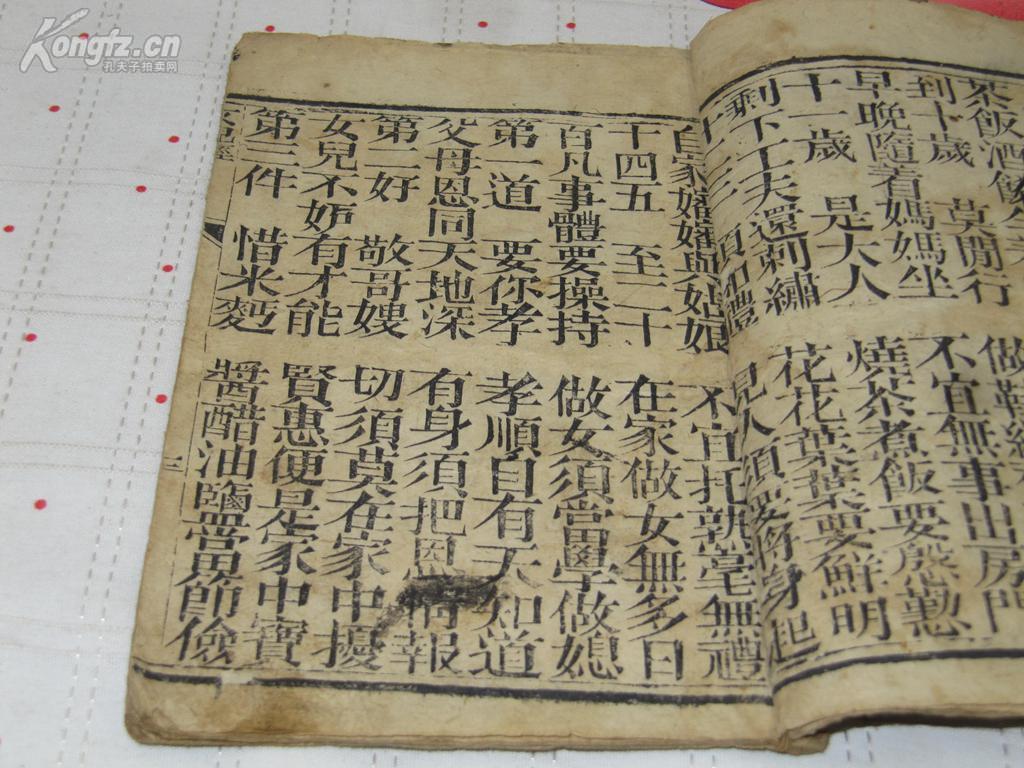 Kongfz.cn
孔夫子拍卖网
茶飯酒餚
到十歲 莫閒行 不宜無事出房門
早晚隨着媽媽坐 燒茶煮飯要慇懃
十一歲 是大人 花花葉葉要鮮明
剩下工夫還刺繡 身起
自家 與姑娘 不宜打執毫無禮
十四五 至二十 在家做女無多日
百凡事體要操持 做女須當學做媳
第一道 要你孝 孝順自有天知道
父母恩同天地深 有身須把恩情報
第二好 敬哥嫂 切須莫在家中擾
女兒不妒有才能 賢惠便是家中寶
第三件 惜米麪 醬醋油鹽當節儉